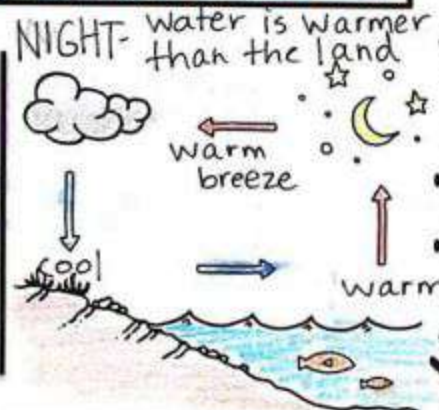 NIGHT- Water is warmer
than the land
warm
breeze
cool
warm